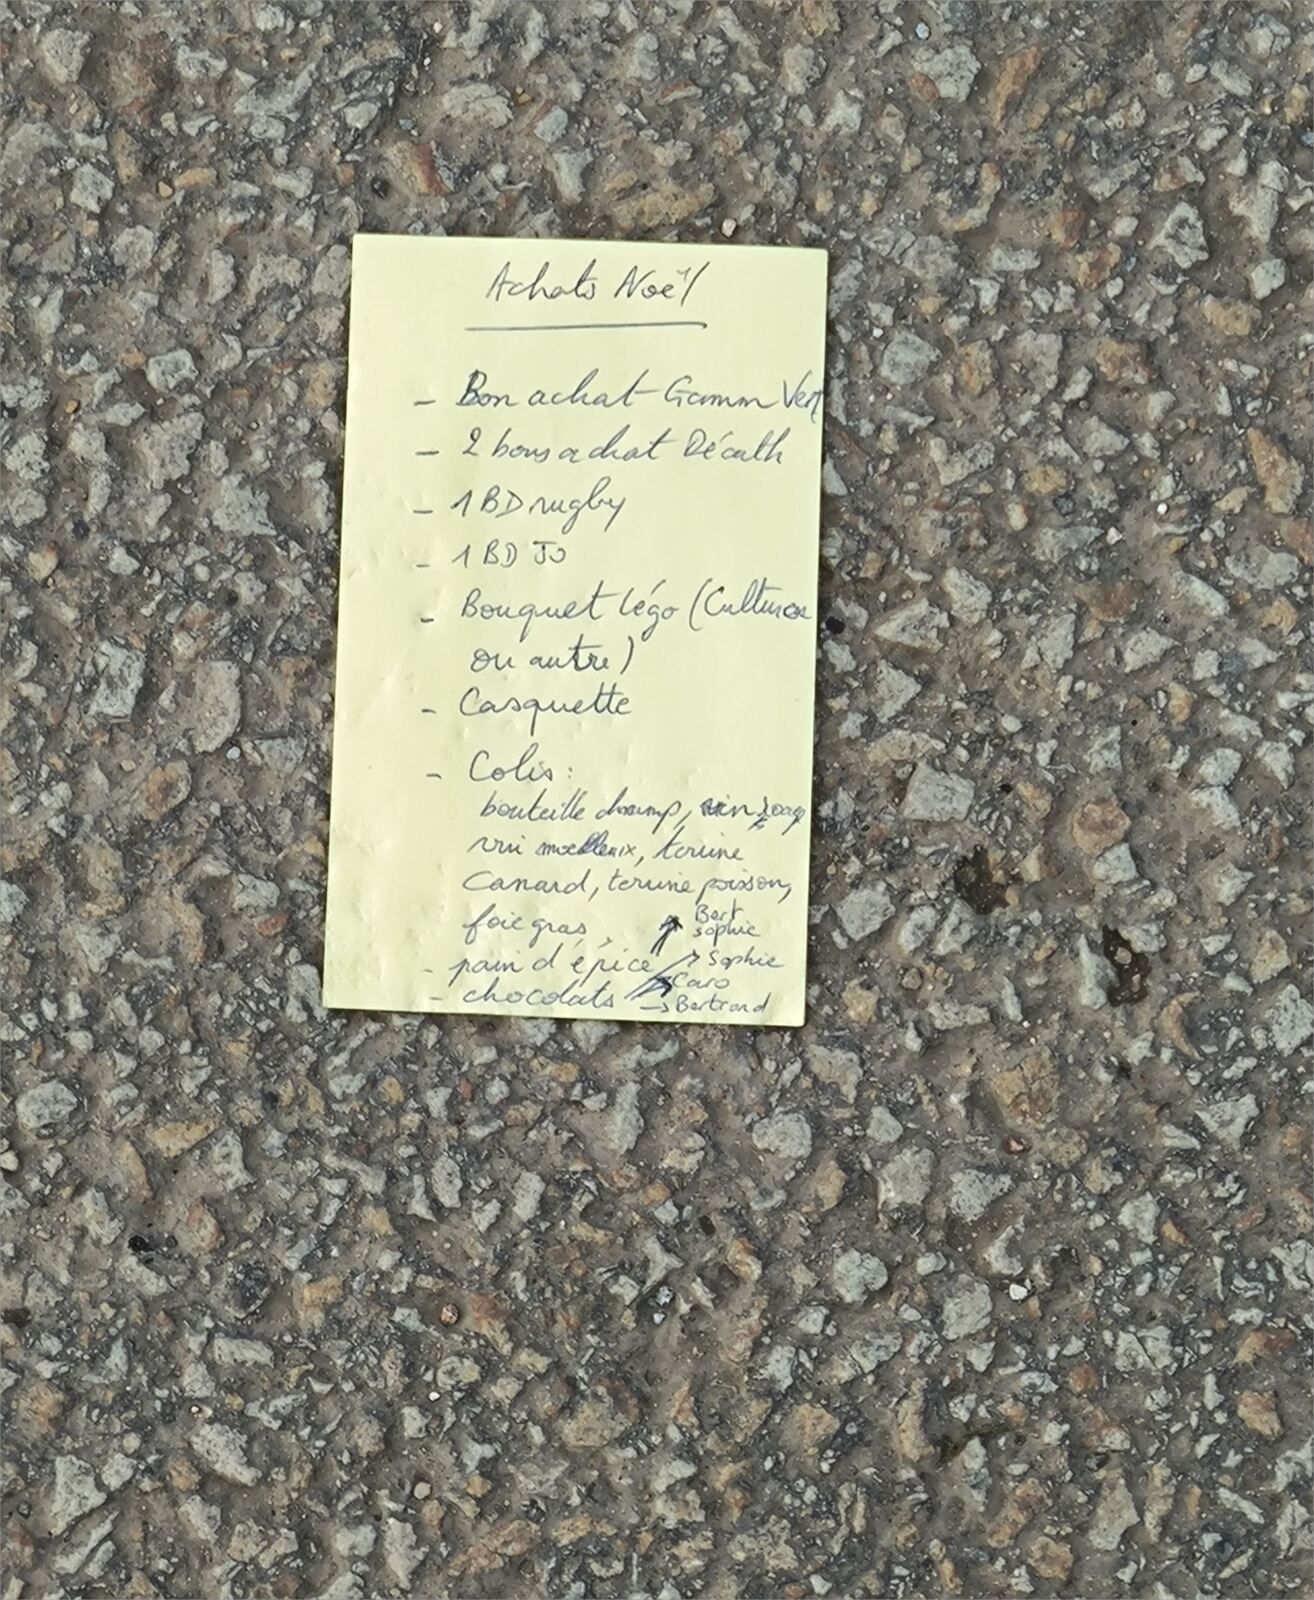 Achats Noël
- Bon achat Gamm Vert
- 2 bons achat Décath
- 1 BD rugby
- 1 BD JO
- Bouquet légo (Cultura
ou autre)
- Casquette
- Colis :
bouteille champ, vin rouge
vin moelleux, terrine
Canard, terrine poisson,
foie gras,
Bert
Sophie
- pain d'épice → Sophie
Caro
- chocolats → Bertrand